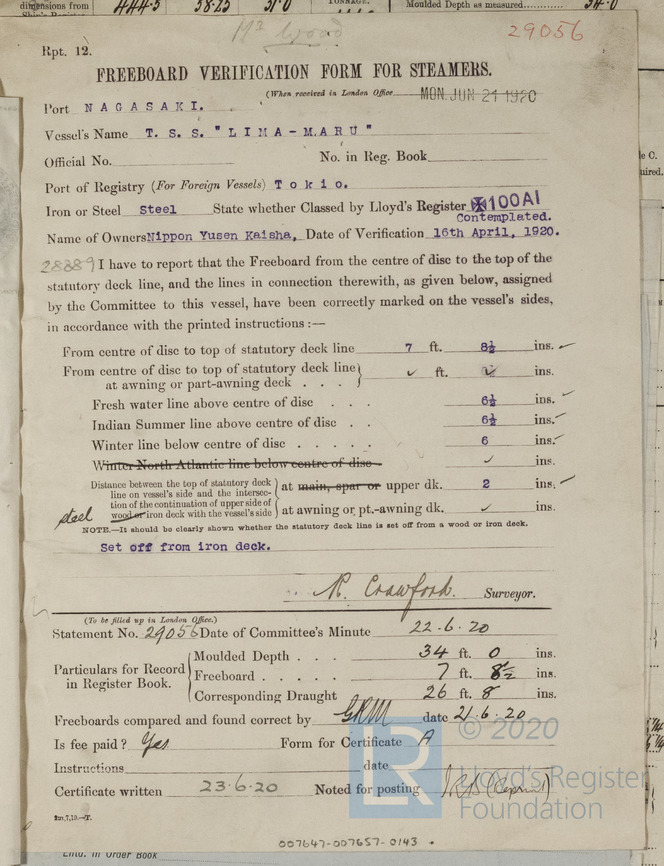 dimensions from 444.5 58.25 31.0 TONNAGE. Moulded Depth as measured............ 34.0
29056
Rpt. 12.
FREEBOARD VERIFICATION FORM FOR STEAMERS.
(When received in London Office MON. JUN 21 1920
Port NAGASAKI.
Vessel's Name T. S. S. "LIMA-MARU"
Official No. No. in Reg. Book
Port of Registry (For Foreign Vessels) Tokio.
Iron or Steel Steel State whether Classed by Lloyd's Register ✠100A1
Contemplated.
Name of Owners Nippon Yusen Kaisha, Date of Verification 16th April, 1920.
28389 I have to report that the Freeboard from the centre of disc to the top of the
statutory deck line, and the lines in connection therewith, as given below, assigned
by the Committee to this vessel, have been correctly marked on the vessel's sides,
in accordance with the printed instructions :—
From centre of disc to top of statutory deck line 7 ft. 8½ ins. ✓
From centre of disc to top of statutory deck line
at awning or part-awning deck . . . ✓ ft. ✓ ins.
Fresh water line above centre of disc . . . 6½ ins. ✓
Indian Summer line above centre of disc . . 6½ ins. ✓
Winter line below centre of disc . . . . . 6 ins. ✓
Winter North Atlantic line below centre of disc ✓ ins.
Distance between the top of statutory deck
line on vessel's side and the intersec-
at main, spar or upper dk. 2 ins. ✓
tion of the continuation of upper side of
steel wood or iron deck with the vessel's side
at awning or pt.-awning dk. ✓ ins.
NOTE.—It should be clearly shown whether the statutory deck line is set off from a wood or iron deck.
Set off from iron deck.
R. Crawford. Surveyor.
(To be filled up in London Office.)
Statement No. 29056 Date of Committee's Minute 22.6.20
Particulars for Record
in Register Book.
Moulded Depth . . . 34 ft. 0 ins.
Freeboard . . . . . 7 ft. 8½ ins.
Corresponding Draught 26 ft. 8 ins.
Freeboards compared and found correct by GRM date 21.6.20
Is fee paid? Yes Form for Certificate A
Instructions date
Certificate written 23.6.20 Noted for posting
© 2020
LR
Lloyd's Register
Foundation
007647-007657-0143